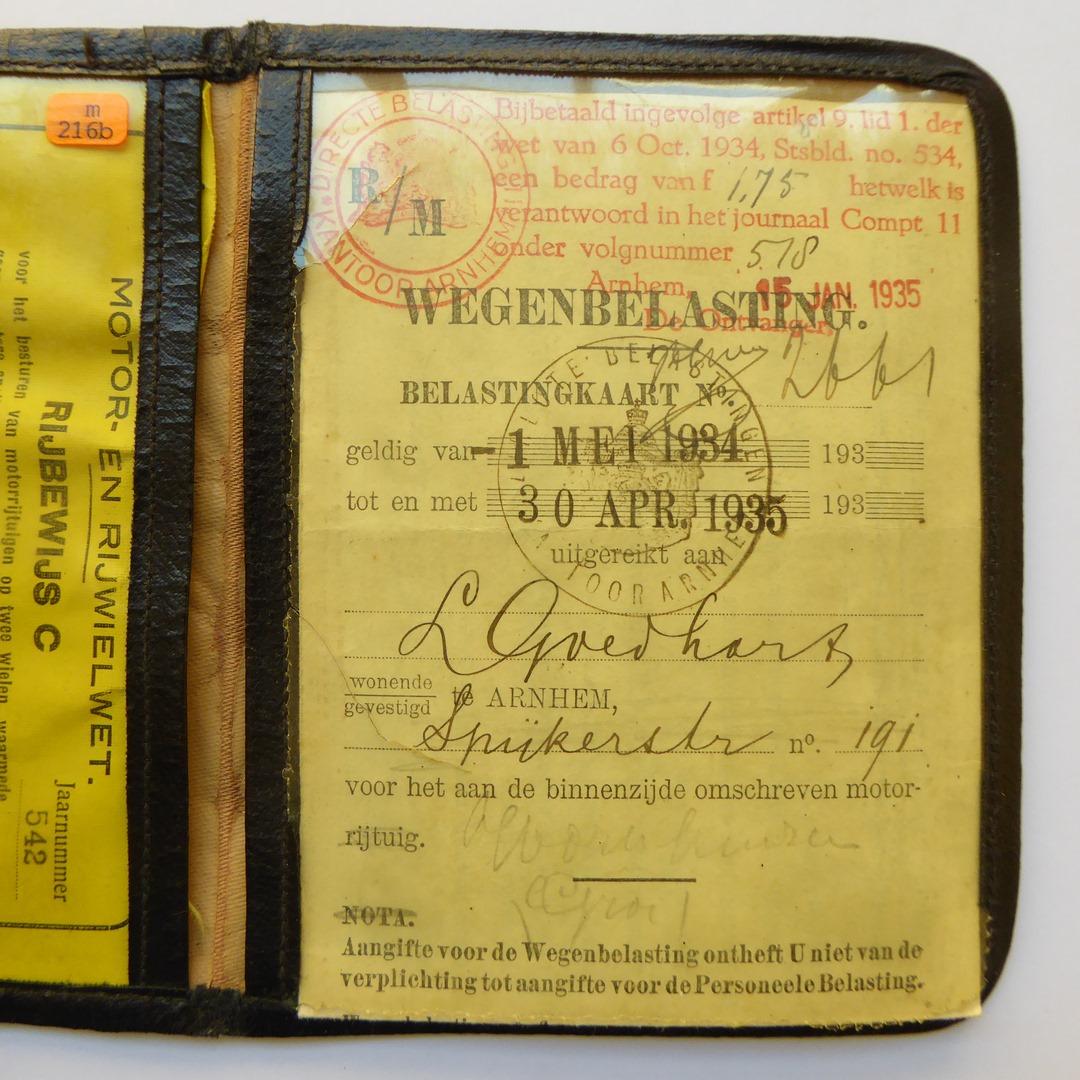 m
216b
MOTOR- EN RIJWIELWET.
RIJBEWIJS C
voor het besturen van motorrijtuigen op twee wielen waarmede
Jaarnummer
542
KANTOOR ARNHEM
R/M
Bijbetaald ingevolge artikel 9. lid 1. der
wet van 6 Oct. 1934, Stsbld. no. 534,
een bedrag van f 1,75 hetwelk is
verantwoord in het journaal Compt 11
onder volgnummer 578
Arnhem, 15 JAN. 1935
De Ontvanger,
WEGENBELASTING.
BELASTINGKAART No. 2661
geldig van - 1 MEI 1934 193
tot en met 30 APR. 1935 193
uitgereikt aan
L Goedhart
wonende
gevestigd te ARNHEM,
Spijkerstr no. 191
voor het aan de binnenzijde omschreven motor-
rijtuig.
NOTA.
Aangifte voor de Wegenbelasting ontheft U niet van de
verplichting tot aangifte voor de Personeele Belasting.